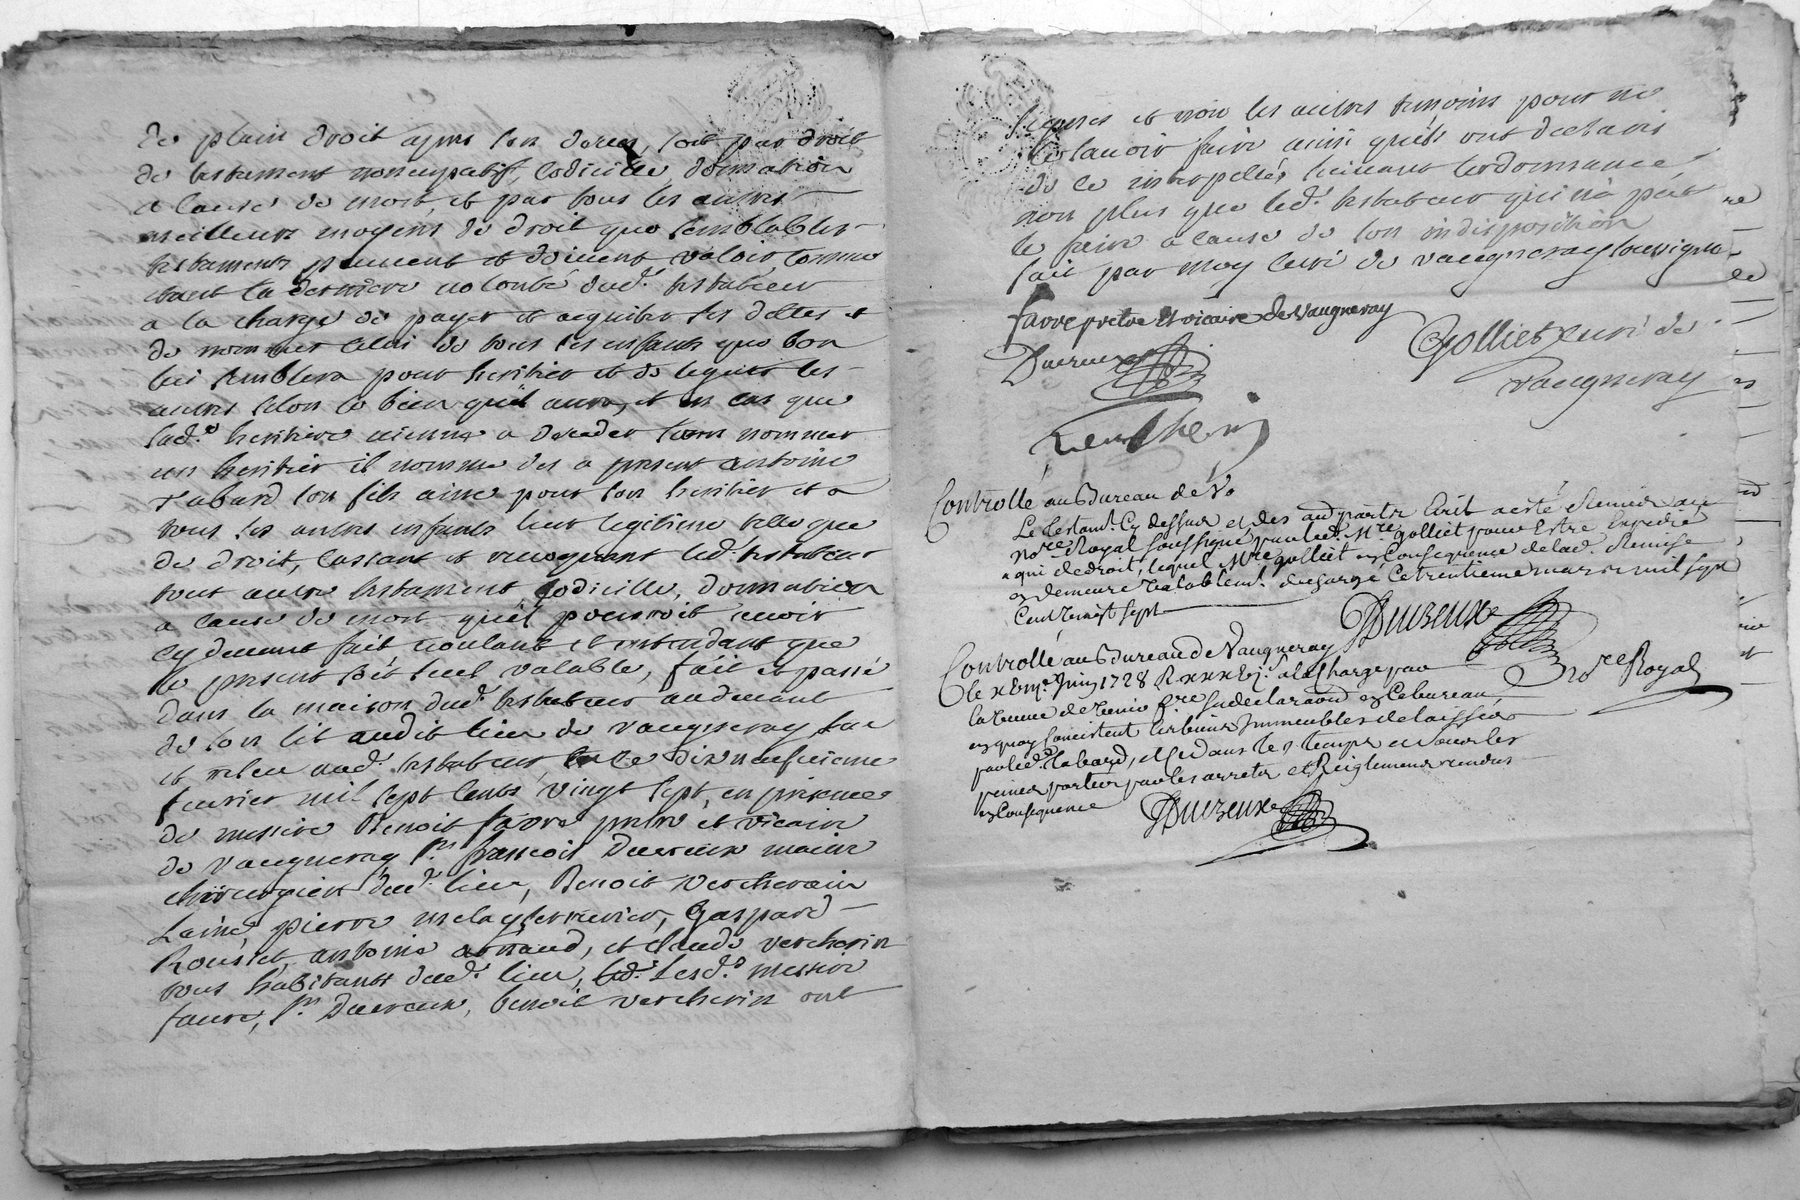 de plain droit apres son deces, soit par droit
de testament noncupatiff, codicille, donnation
a cause de mort, et par tous les autres
meilleurs moyens de droit que semblables
testaments peuvent et doivent valoir comme
estant la derniere volonté dud.t testateur
a la charge de payer et acquiter ses dettes et
de nommer celui de tous ses enfants que bon
lui semblera pour heritier et de leguer les
autres selon le bien qu'il aura, et en cas que
lad.e heritiere vienne a deceder sans nommer
un heritier il nomme des a present antoine
Tabard son fils aine pour son heritier et a
tous ses autres enfants leur legitime telle que
de droit, cassant et revoquant led.t testateur
tout autre testament, codicille, donnation
a cause de mort qu'il pourroit avoir
cy devant fait voulant et entendant que
le present soit seul valable, fait et passé
dans la maison dud.t testateur au devant
de son lit audit lieu de vaugneray, lu
et relu aud.t testateur, ce dix neufvieme
fevrier mil sept cents vingt sept, en presence
de messire Benoit favre pretre et vicaire
de vaugneray s.r françois Duereux maitre
chirurgien dud.t lieu, Benoit Vercherain
Lainé, pierre, Gaspard
Rousset, antoine arnaud, et claude vercherin
tous habitants dud.t lieu, lesd.s messire
faure, s.r Duereux, benoit vercherin ont
signés et non les autres temoins pour ne
le scavoir faire ainsi qu'ils ont declarés
de ce interpellés suivant lordonnance
non plus que led.t testateur qui n'a peut
le faire a cause de son indisposition
fait par moy curé de vaugneray soussigné
favre pretre et vicaire de Vaugneray
Duereux
Golliet curé de
vaugneray
Controllé au Bureau de Vo
Le Testam.t Cy dessus et des aud partir Ecrit a eté Remis au
no.re Royal soussigné par led. M.re golliet pour Estre Expedié
a qui de droit, lequel M.re golliet en Consequence de lad. Remise
en demeure Valablem.t deschargé Ce trentieme mars mil sept
Cent vingt sept
Duereux
no.re Royal
Controllé au Bureau de Vaugneray
le juin 1728 a la Charge par
en quoy Consistent les biens Immeubles delaissés
par led. tabard, et ce dans le temps et sous les
peines portées par les arrets et Reiglements rendus
en Consequence
Duereux